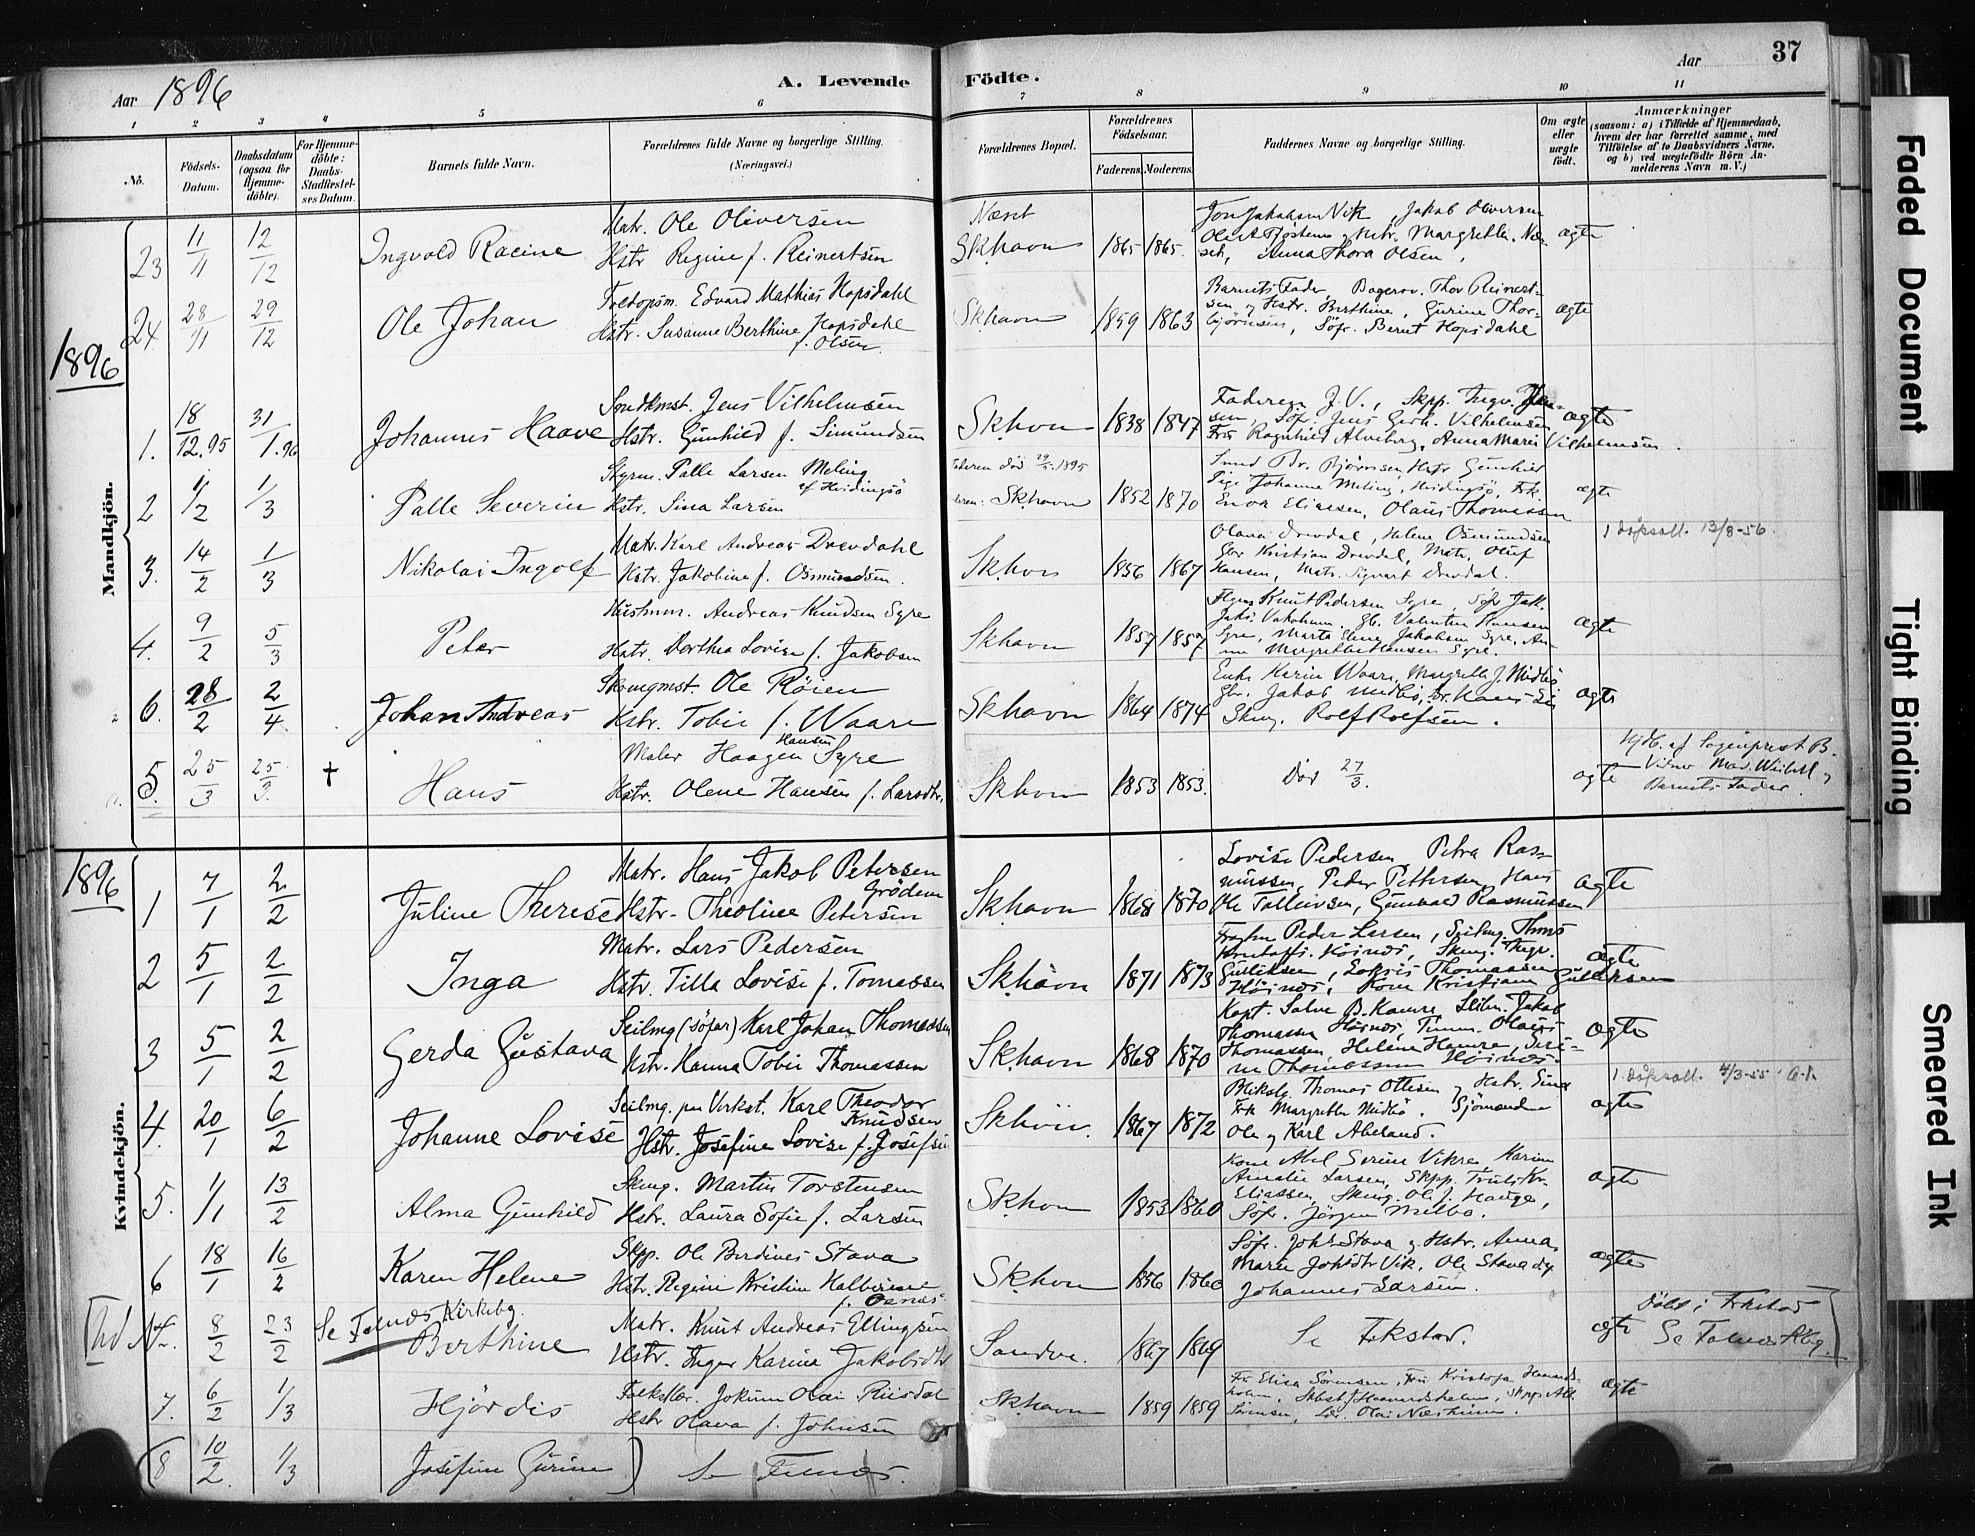 Aar 1896
A. Levende Födte.
Aar
37
1 2 3 4 5 6 7 8 9 10 11
No.
Födsels-Datum.
Daabsdatum (ogsaa for Hjemme-döbte).
For Hjemme-döbte: Daabs-Stadfæstel-ses Datum.
Barnets fulde Navn.
Forældrenes fulde Navne og borgerlige Stilling. (Næringsvei.)
Forældrenes Bopæl.
Forældrenes Födselsaar.
Faderens. Moderens.
Faddernes Navne og borgerlige Stilling.
Om ægte eller uægte födt.
Anmærkninger
(saasom: a) i Tilfælde af Hjemmedaab, hvem der har forrettet samme, med Tilföielse af to Daabsvidners Navne, og b) ved uægtefödte Börn An-melderens Navn m. V.)
Mandkjön.
23 11/11 12/12 Ingvald Racine
Matr. Ole Oliversen
Hstr Regine f. Reinertsen
Næset Skhavn 1865 1865.
Jon Jakobsen Vik, Jakob Oliversen
Anna Thora Olsen,
ægte
24. 28/11 29/12 Ole Johan
Toldopsm. Edvard Mathias Hopsdahl
Hstr. Susanne Berthine Hopsdahl
f. Olsen.
Skhavn 1859 1863
Barnets Fader, Bager Thor Reinert-
sen og Hstr. Berthine, Gurine Thor-
björnsen, Söfr. Bernt Hopsdahl
ægte
1896
1. 18/12.95 31/1.96 Johannes Haave
Smedmst. Jens Vilhelmsen
Hstr. Gunhild f. Simundsen
Skhvn 1838 1847
Faderen J.V., Skpp. Ingv. Jen-
sen, Söfr. Jens Gerh. Vilhelmsen
Frk Ragnhild Alveberg, Anna Marie Vilhelmsen.
ægte
2 1/2 1/3 Palle Severin
Styrm. Palle Larsen Meling
af Hvidingsö
Hstr. Sina Larsen
Faderen död 29/5 1895
Skhavn 1852 1870
Smed Br. Björnsen, Hstr Gunhild
Pige Johanne Meling, Hvidingsö, Frk.
Enva Eliasen, Olaus Thomassen
ægte
3. 14/2 1/3 Nikolai Ingolf
Matr. Karl Andreas Drevdahl
Hstr. Jakobine f. Osmundsen.
Skhvn 1856 1867
Olava Drevdal, Helene Osmundsen
Gbr Kristian Drevdal, Matr. Oluf
Hansen, Matr. Sigvart Drevdal.
1 dåpsatt. 13/8-56.
4. 9/2 5/3 Peter
Husmm. Andreas Knudsen Syre
Hstr. Dorthea Lovise f. Jakobsen
Skhavn 1857 1857
Knut Pedersen Syre, Söfr Jak.
Gb. Valentin Hansen
Syre, Marta Elene Jakobsen Syre, An-
na Margrethe Hansen Syre.
ægte
6. 28/2 2/4 Johan Andreas
Skomgmst. Ole Röien
Hstr. Tobie f. Waare
Skhavn 1864 1874
Enke Karin Waare, Margrethe J. Midbö
Gbr. Jakob Midbö,
Skmg. Rolf Rolfsen.
ægte
5. 25/3 25/3. † Hans
Maler Haagen Hansen Syre
Hstr. Olene Hansen f. Larsdtr.
Skhvn 1853 1853.
Död 27/3.
ægte
Hjdb. af Sogneprest B.
Vitner Mad. Weibell og
Barnets Fader.
1896
Kvindekjön.
1 7/1 2/2 Juline Therese
Matr. Hans Jakob Petersen
Grödem
Hstr. Theoline Petersen
Skhavn 1868 1870
Lovise Pedersen, Petra Ras-
mussen, Peder Pettersen, Hans
Ole Talleivsen, Gunvald Rasmussen
ægte
2 5/1 2/2 Inga
Matr. Lars Pedersen
Hstr. Tilla Lovise f. Tomassen
Skhavn 1871 1873
Peder Larsen, Seilmg. Thms
Höines, Skmg. Ingv.
Gulliksen, Thomassen
Höines, Kone Kristiane Gulliksen
ægte
3 5/1 2/2 Gerda Gustava
Seilmg (söfar) Karl Johan Thomassen
Hstr. Hanna Tobie Thomassen
Skhavn 1868 1870
Kapt. Salve B. Hamre, Jakob
Thomassen Höines, Tömm. Olaus
Thomassen, Helene Hamre, Seri-
ne Thomassen Höines.
ægte
4. 20/1 6/2 Johanne Lovise
Seilmg. paa Virkst. Karl Theodor
Knudsen
Hstr. Josefine Lovise f. Josefsen
Skhvn. 1867 1872
Thomas Ottesen og Hstr. Sina
Frk Margrethe Midbö. Sjömændene
Ole og Karl Abeland.
ægte
1 dåpsatt. 4/3-55
5. 1/1 13/2 Alma Gunhild
Skmg. Martin Torstensen
Hstr. Laura Sofie f. Larsen
Skhvn 1853 1860
Kone Abel Serine Vikre, Karine
Amalie Larsen, Skpp. Truls Kr.
Eliassen, Skmg. Ole J. Hauge,
Söfr. Jörgen Melbö.
ægte
6 18/1 16/2 Karen Helene
Skpp. Ole Berdines Stava
Hstr. Regine Kristine Halvorine
f. Osnes
Skhvn 1856 1860
Söfr. Johs Stava og Hstr. Anna,
Marie Johsdtr Vik, Ole Stava og
Johannes Larsen.
ægte
8/2 23/2 Se Falnes Kirkebg.
Berthine
Matr. Knut Andreas Ellingsen
Hstr. Inger Karina Jakobsdtr
Sandve. 1867 1869
Se Fekstad.
ægte
Döbt i Fekstad
Se Falnes Kbg.
7. 6/2 1/3 Hjördis
Jokum Olai Riisdal
Hstr Olava f. Johnsen
Skhavn 1859 1859
Fr Elisa Sörensen, Frk Kristofa
Sörensen, Lær. Olai Næsheim.
ægte
(8 10/2 1/3 Josefine Gurine) Se Falnes.
Faded Document
Tight Binding
Smeared Ink